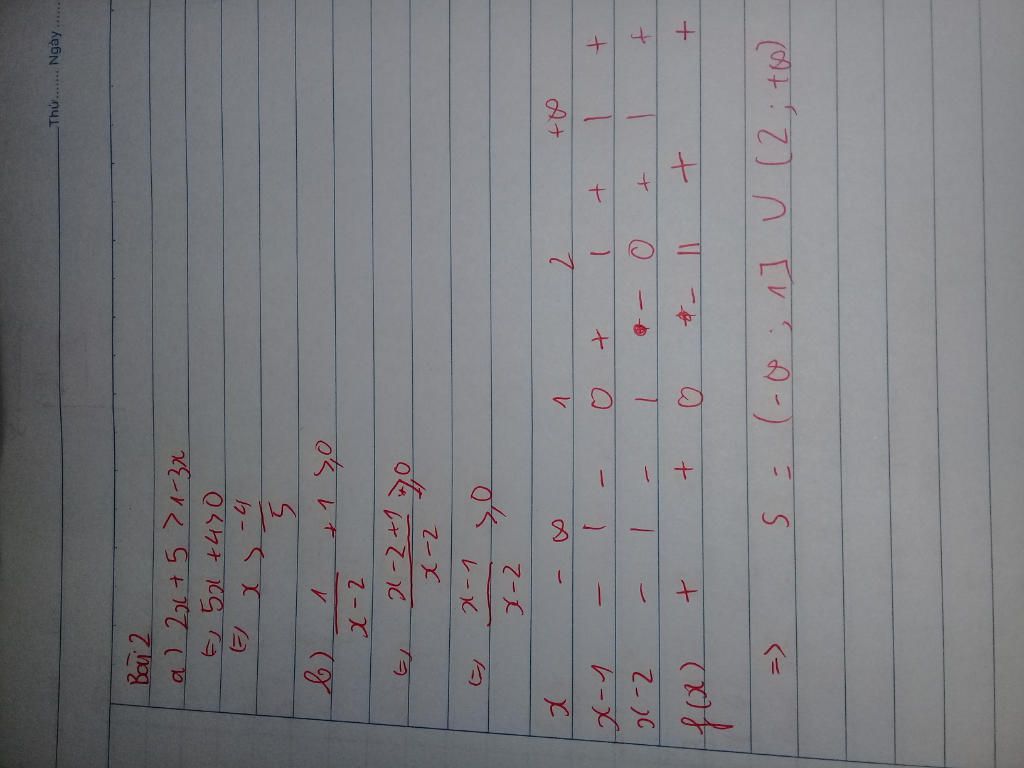 Thứ........ Ngày ........
Bài 2
a) 2x + 5 > 1 - 3x
(=) 5x + 4 > 0
(=) x > -4/5
b) 1/(x-2) + 1 ≥ 0
(=) (x-2+1)/(x-2) ≥ 0
(=) (x-1)/(x-2) ≥ 0
x -∞ 1 2 +∞
x-1 - | - 0 + | + | +
x-2 - | - | - 0 + | +
f(x) + + 0 - || + +
=> S = (-∞ ; 1] ∪ (2 ; +∞)